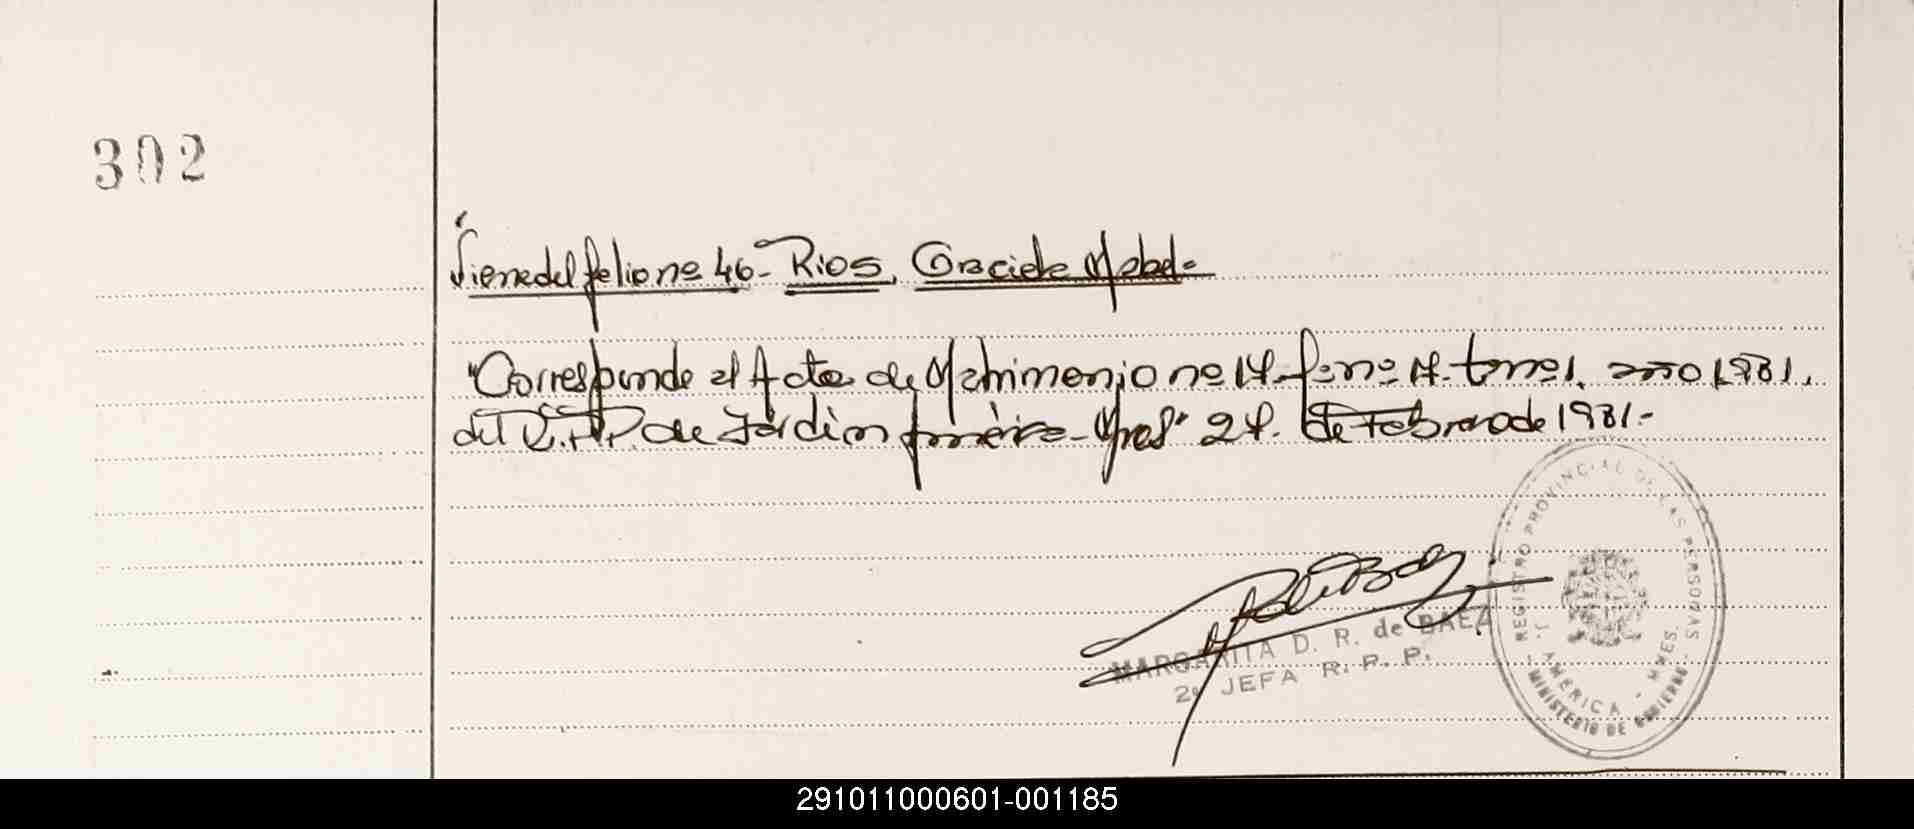 302
Viene del folio nº 46- Rios, Graciela Mabel-
"Corresponde al Acta de Matrimonio nº 14- fº nº 14- tomo 1, año 1981,
del R.P.P. de Jardin América- Mnes, 24, de Febrero de 1981.-
MARGARITA D. R. de BAEZ
2a JEFA R. P. P.
REGISTRO PROVINCIAL DE LAS PERSONAS
J. AMERICA - MNES.
MINISTERIO DE GOBIERNO
291011000601-001185